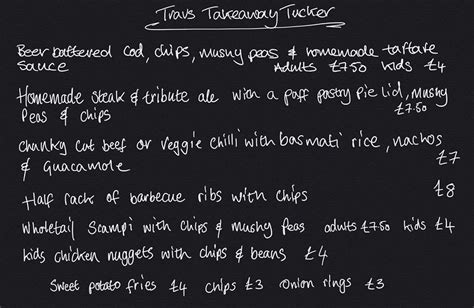 Travs Takeaway Tucker
Beer battered Cod, chips, mushy peas & homemade tartare
sauce adults £7.50 kids £4
Homemade Steak & tribute ale with a puff pastry Pie Lid, Mushy
Peas & chips £7.50
Chunky cut beef or veggie chilli with basmati rice, nachos
& Guacamole £7
Half rack of barbecue ribs with chips £8
Wholetail Scampi with chips & mushy peas adults £7.50 kids £4
kids chicken nuggets with chips & beans £4
Sweet potato fries £4 chips £3 Onion rings £3